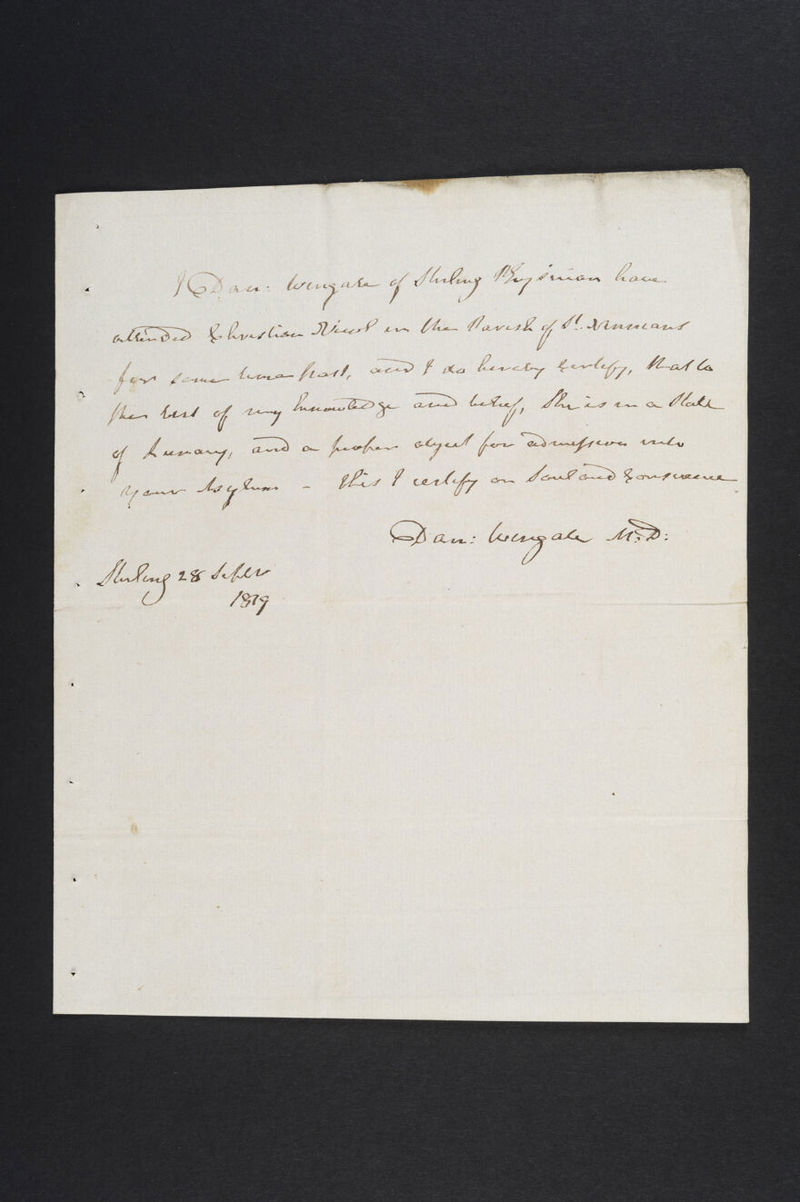 I Dan: Wingate of Stirling Physician have
attended Christian Nicol in the Parish of St. Ninians
for some time past, and I do hereby certify, that to
the best of my knowledge and belief, She is in a State
of Lunacy, and a proper object for admission into
your Asylum - this I certify on Soul and Conscience
Dan: Wingate M.D:
Stirling 28 Septr
1819